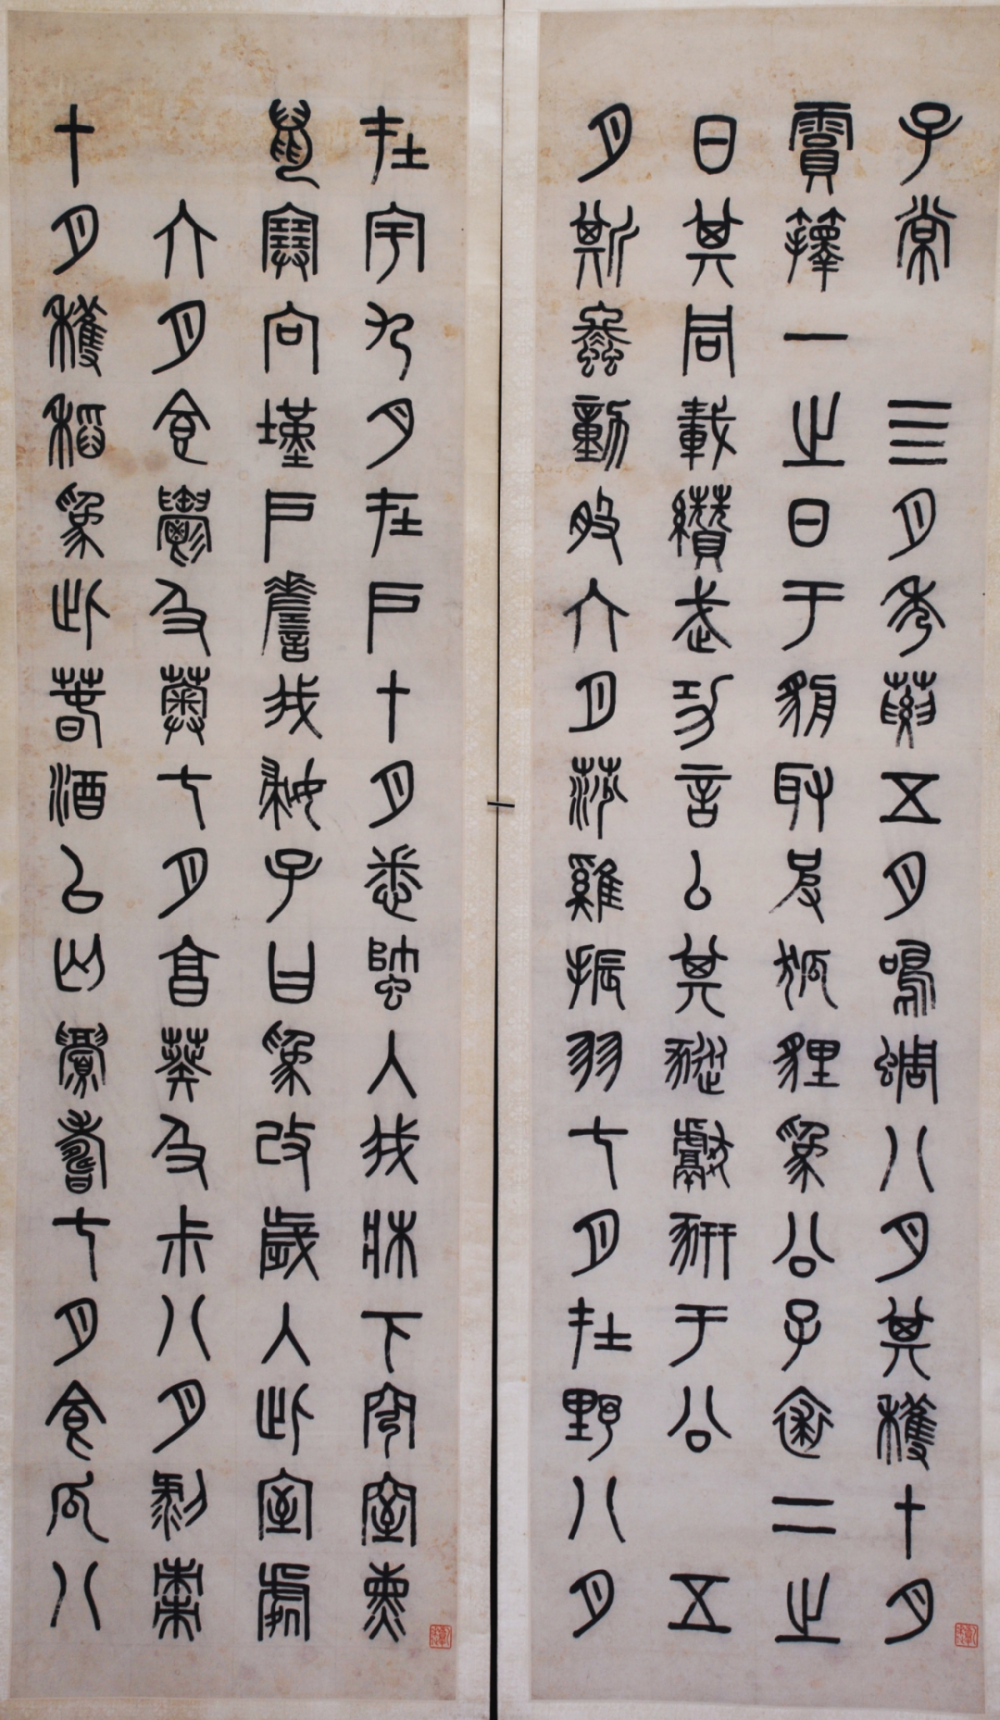 子裳 四月秀葽五月鳴蜩八月其穫十月
霣蘀一之日于貉取彼狐貍為公子裘二之
日其同載纘武功言私其豵獻豜于公 五
月斯螽動股六月莎雞振羽七月在野八月
在宇九月在戶十月蟋蟀入我牀下穹窒熏
鼠塞向墐戶嗟我婦子曰為改歲入此室處
六月食鬱及薁七月亯葵及尗八月剝棗
十月穫稻為此春酒以介眉壽七月食瓜八